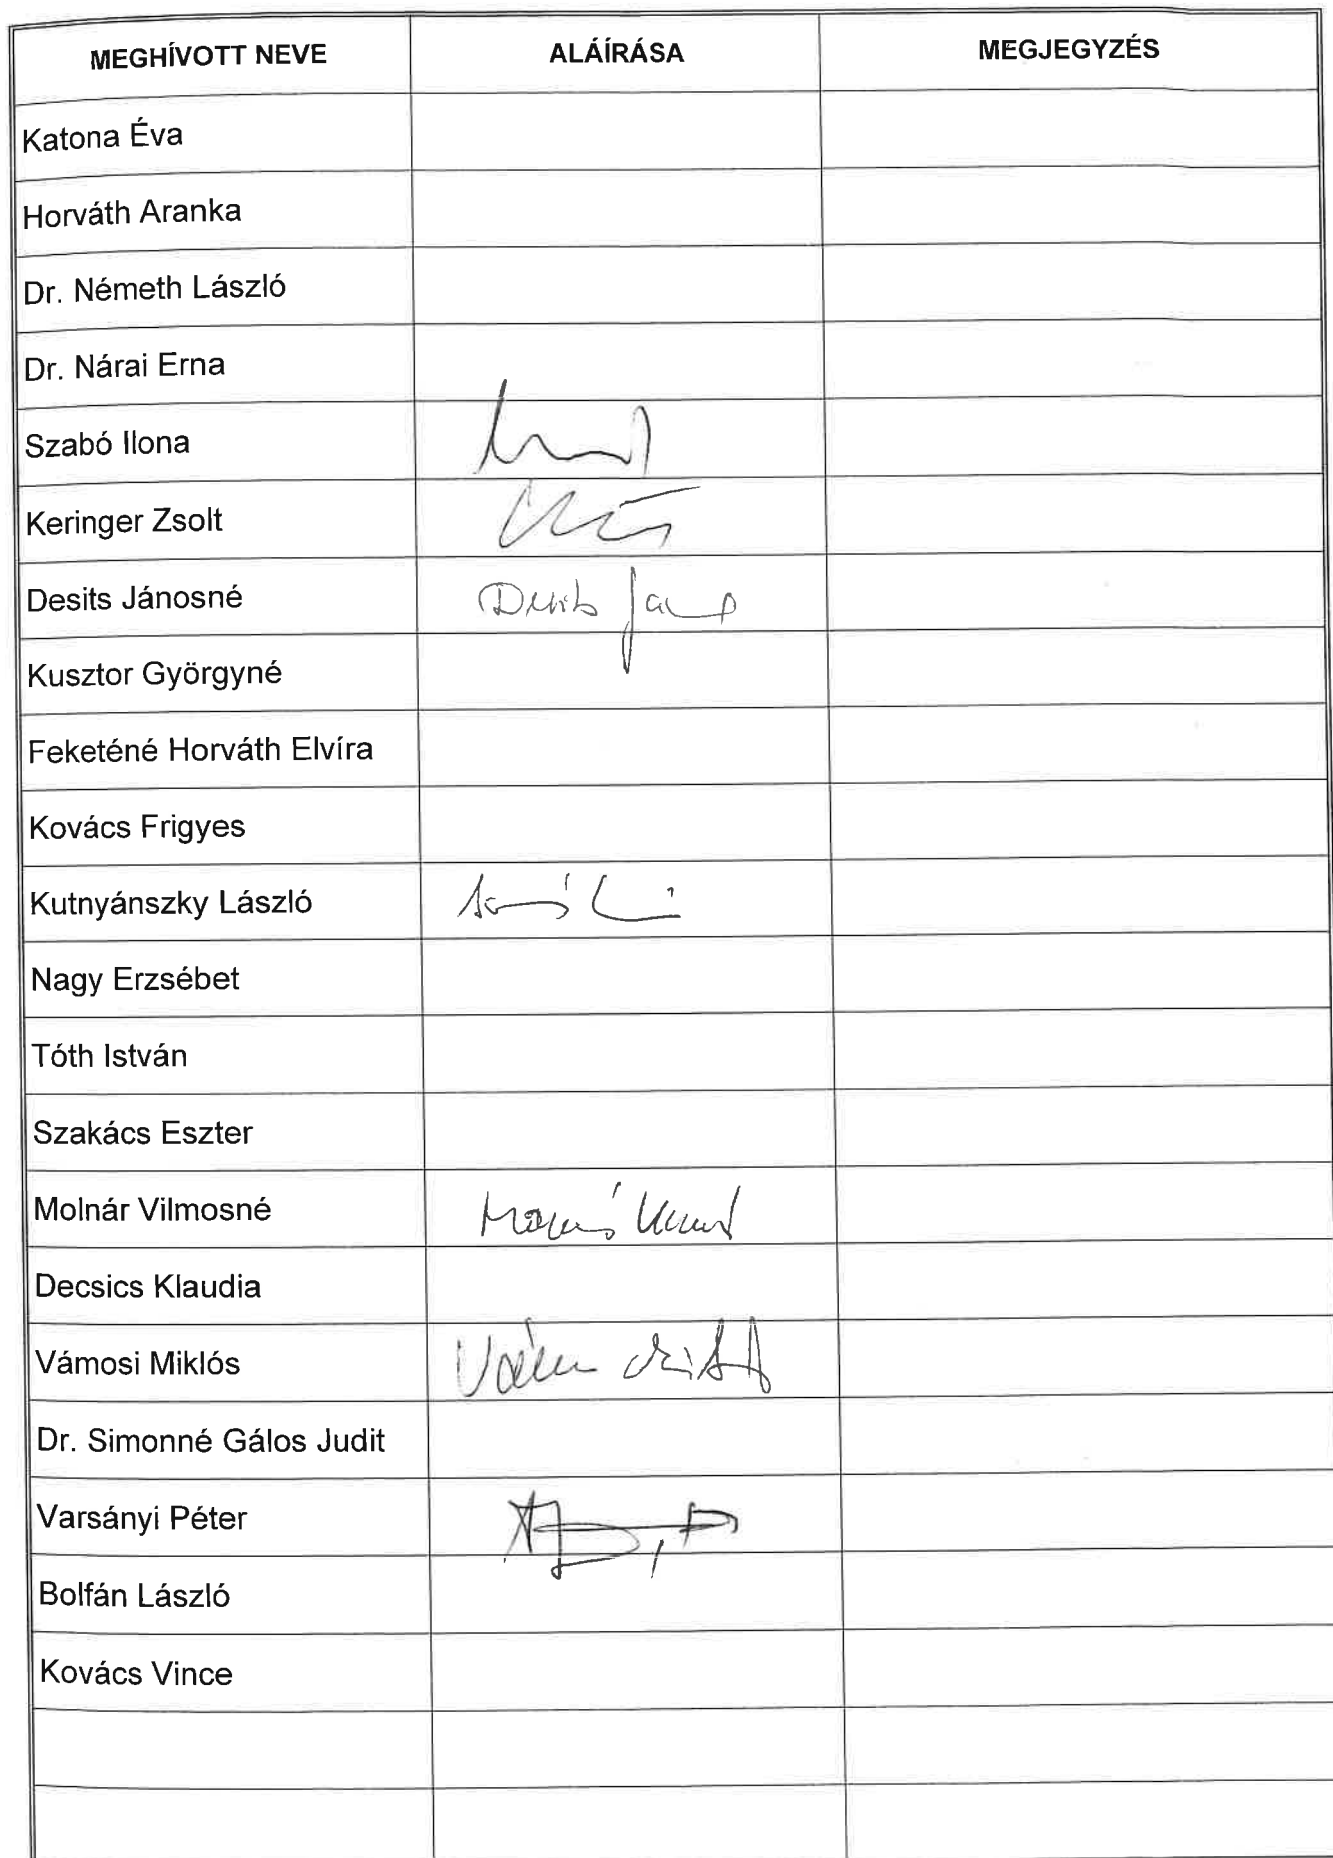 MEGHÍVOTT NEVE ALÁÍRÁSA MEGJEGYZÉS
Katona Éva
Horváth Aranka
Dr. Németh László
Dr. Nárai Erna
Szabó Ilona
Keringer Zsolt
Desits Jánosné
Kusztor Györgyné
Feketéné Horváth Elvíra
Kovács Frigyes
Kutnyánszky László
Nagy Erzsébet
Tóth István
Szakács Eszter
Molnár Vilmosné
Decsics Klaudia
Vámosi Miklós
Dr. Simonné Gálos Judit
Varsányi Péter
Bolfán László
Kovács Vince